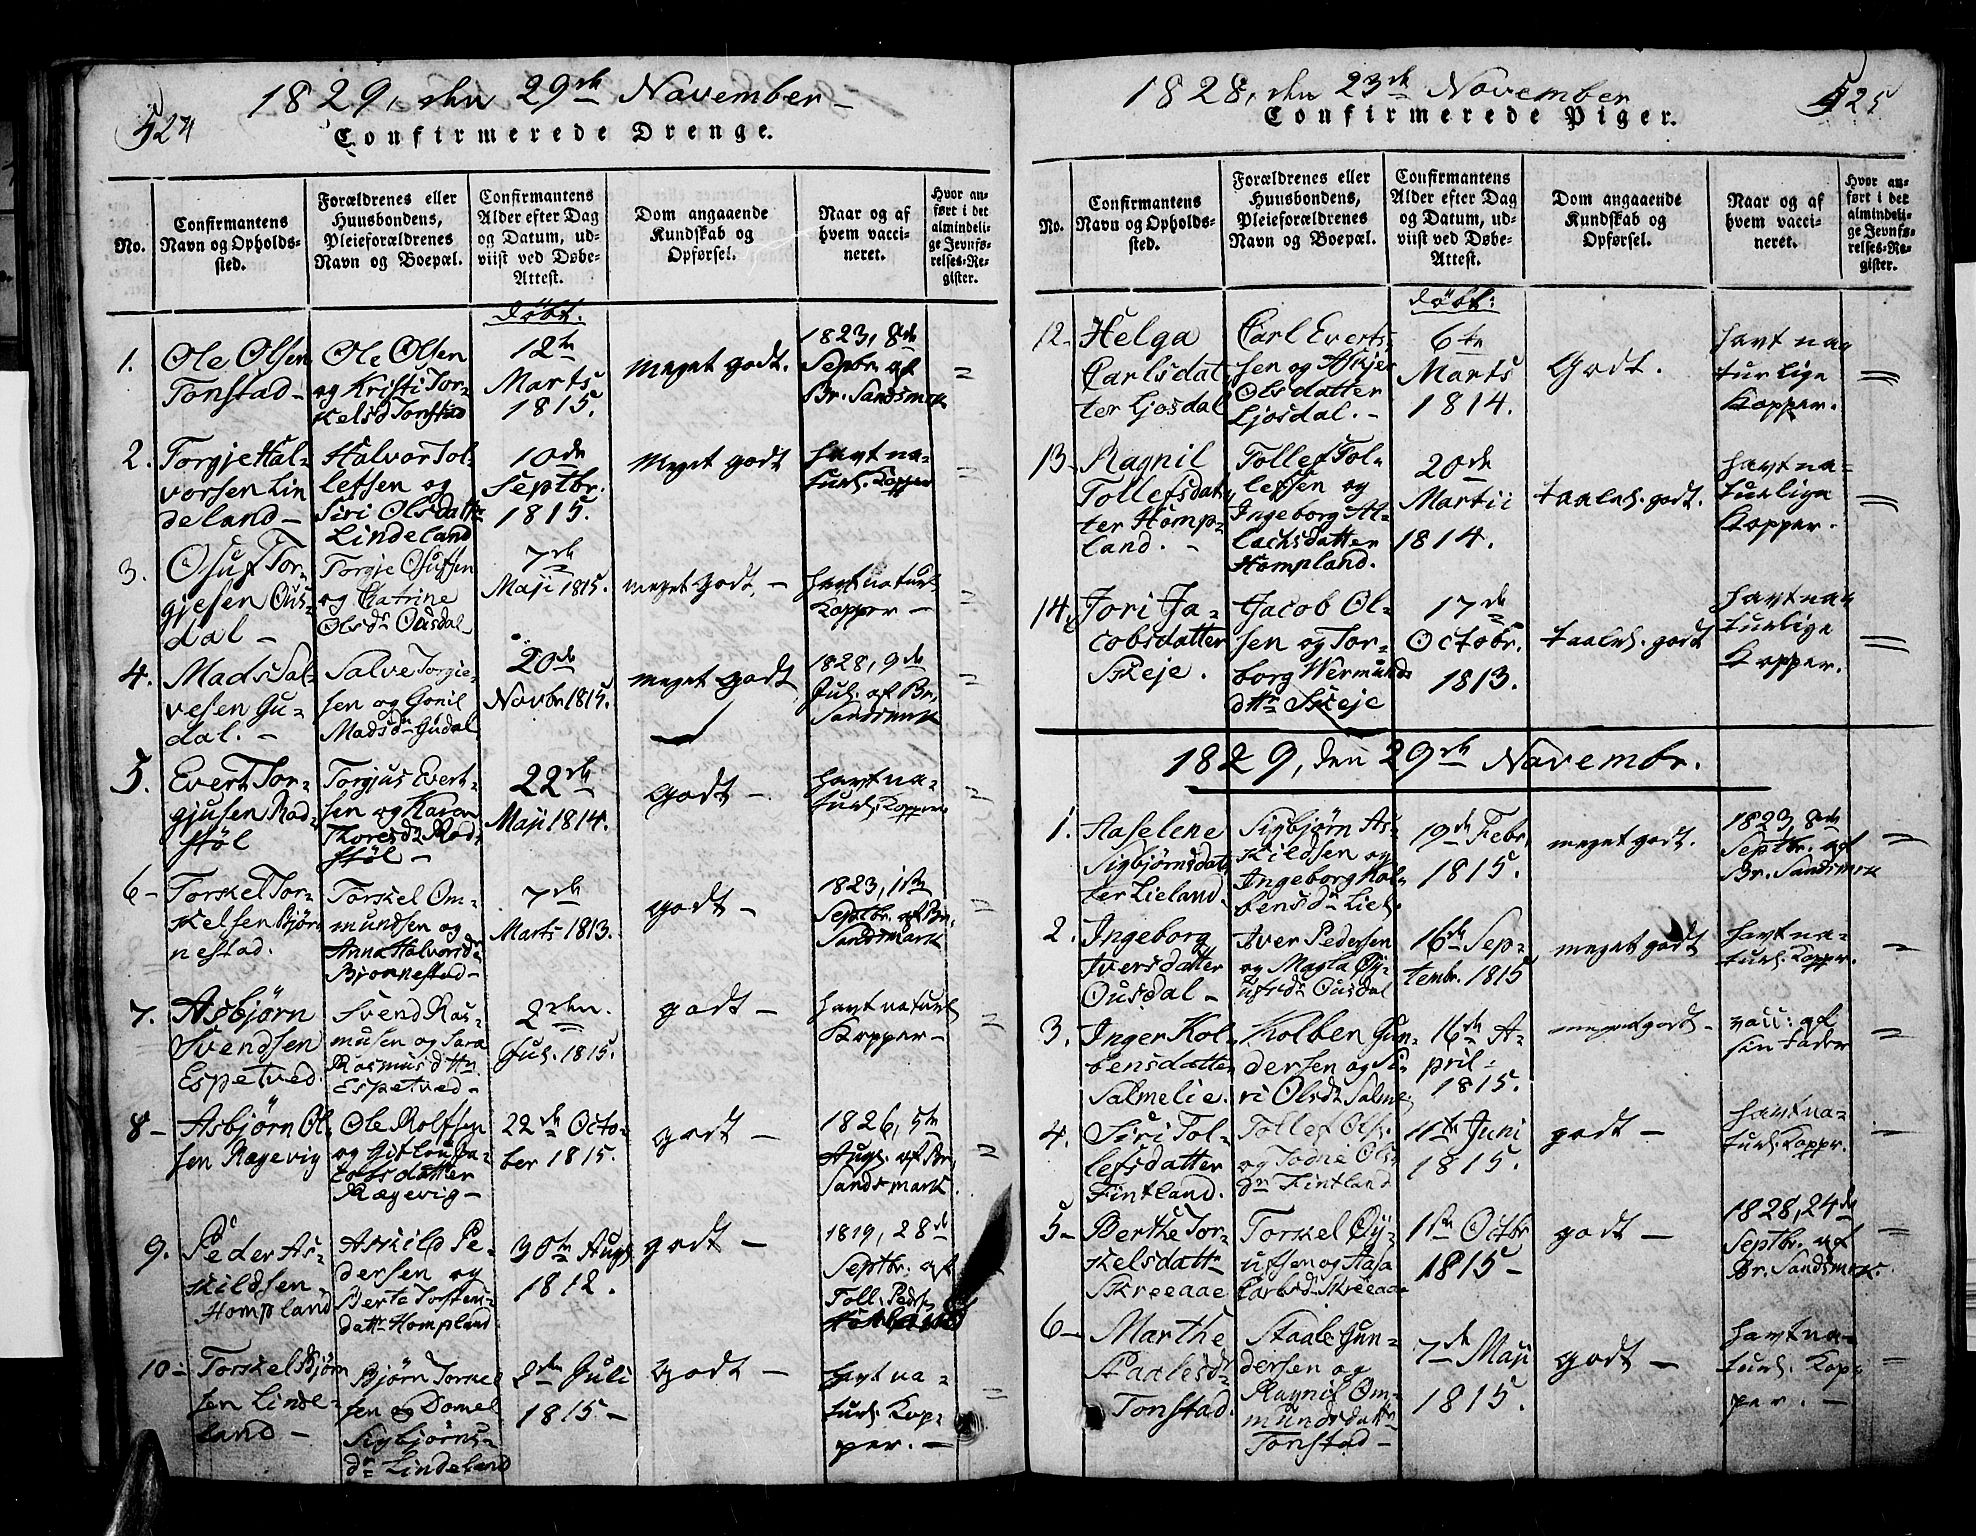 524
1829, den 29de November
Confirmerede Drenge.
No.
Confirmantens
Navn og Opholds-
sted.
Forældrenes eller
Huusbondens,
Pleieforældrenes
Navn og Boepæl.
Confirmantens
Alder efter Dag
og Datum, ud-
viist ved Døbe-
Attest.
Dom angaaende
Kundskab og
Opførsel.
Naar og af
hvem vacci-
neret.
Hvor an-
ført i det
almindeli-
ge Jevnfø-
relses-Re-
gister.
døbt.
1.
Ole Olsen
Tonstad
Ole Olsen
og Kristi Tor-
kelsd Tonstad
12te
Marts
1815.
meget godt.
1823, 8de
Septbr. af
Br. Sandsmrk
2.
Torgje Hal-
vorsen Lin
deland
Halvor Tol-
lefsen og
Siri Olsdattr
Lindeland
10de
Septbr.
1815.
Meget godt
havt na-
turl. Kopper
3.
Osuf Tor-
gjesen Ous-
dal
Torgje Osufsen
og Catrine
Olsdr Ousdal
7de
Maji 1815.
meget godt
havt naturl
Kopper
4.
Mads Sal-
vesen Gu-
dal.
Salve Torgie-
sen og Gonil
Madsdr Gudal
20de
Novbr 1815.
meget godt
1828, 9de
Jul. af Br.
Sandsmrk
5.
Evert Tor-
gjusen Rød-
støl
Torgjus Evert-
sen og Karen
Thoresdr Rød-
støl
22de
Maji 1814.
godt
havt na-
turl. Kopper
6
Torkel Tor-
kelsen Bjør
nestad.
Torkel Om-
mundsen og
Anna Halvorsdr
Bjørnestad
7de
Marts 1813.
godt
1823, 1ste
Septbr. af Br.
Sandsmark
7.
Asbjørn
Svendsen
Espetved
Svend Ras-
musen og Sara
Rasmusdttr
Espetved
2den
Jul. 1815.
godt
havt naturl
Kopper
8
Asbjørn Ol-
sen Røgevig
Ole Rolfsen
og Gitlou Ja-
cobsdatter
Røgevig
22de Octo-
ber 1815.
godt
1826, 5te
Augs. af Br.
Sandsmark.
9.
Peder As-
kildsen
Hompland
Askild Pe-
dersen og
Berte Torstens-
dattr Hompland
30te Augs
1812.
godt
1819, 28de
Septbr. af
Toll. Peders
10
Torkel Bjørn
sen Linde-
land
Bjørn Torkel
sen og Domel
Sigbjørns-
dr Lindeland
2den Juli
1815
godt
havt na-
turl. Kop-
per.
525
1828, den 23de November
Confirmerede Piger.
No.
Confirmantens
Navn og Opholds-
sted.
Forældrenes eller
Huusbondens,
Pleieforældrenes
Navn og Boepæl.
Confirmantens
Alder efter Dag
og Datum, ud-
viist ved Døbe-
Attest.
Dom angaaende
Kundskab og
Opførsel.
Naar og af
hvem vacci-
neret.
Hvor an-
ført i det
almindeli-
ge Jevnfø-
relses-Re-
gister.
døbt:
12
Helga
Carlsdat
ter Ljosdal
Carl Everts-
sen og Askjer
Olsdatter
Ljosdal.
6te
Marts
1814.
Godt.
havt na
turlige
Kopper.
13
Ragnil
Tollefsdat-
ter Homp-
land.
Tollef Tol-
lefsen og
Ingeborg At-
lachsdatter
Hompland.
20de
Martii
1814.
taalel. godt.
havt na-
turlige
Kopper.
14.
Jori Ja-
cobsdatter
Skeje.
Jacob Ol-
sen og Tor-
borg Wermunds
dttr Skeje
17de
Octobr.
1813.
taalel. godt
havt na
turlige
Kopper.
1829, den 29de Novembr.
1.
Aaselene
Sigbjørnsdat
ter Lieland
Sigbjørn As-
kildsen og
Ingeborg Kol-
bensdr Liel.
19de Febr.
1815.
meget godt.
1823, 8de
Septbr. af
Br. Sandsmrk
2.
Ingeborg
Iversdatter
Ousdal
Iver Pedersen
og Magla Øy-
ufsdr Ousdal
16de Sep-
tembr. 1815
meget godt
havt na-
turl. Kopper.
3.
Inger Kol-
bensdatter
Salmelie.
Kolben Gun-
dersen og Si-
ri Olsdr Salme
16de A-
pril
1815.
meget godt
vacc: af
sin Fader
4.
Siri Tol-
lefsdatter
Fintland.
Tollef Ols.
og Todne Ols-
dr Fintland
11te Juni
1815.
godt
havt na-
turl. Kopper.
5
Berthe Tor-
kelsdattr
Skreeaae
Torkel Øy-
ufsen og Aasa
Carlsd. Skreeaae
1ste Octbr
1815
godt
1828, 24de
Septbr. af
Br. Sandsmrk.
6
Marthe
Staalesdr
Tonstad.
Staale Gun-
dersen og
Ragnil Om-
mundsdattr
Tonstad
7de Maji
1815.
godt
havt na-
turl. Kop-
per.